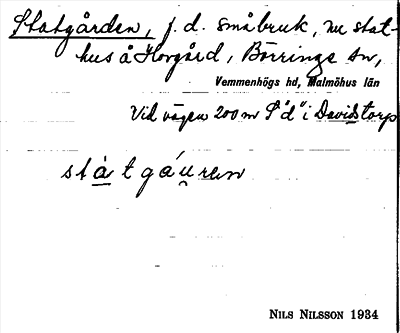 Statgården, f. d. småbruk, nu stat-
hus å Horgård, Börringe sn,
Vemmenhögs hd, Malmöhus län
Vid vägen 200 m S "d" i Davidstorp
státgáu̯ren
NILS NILSSON 1934